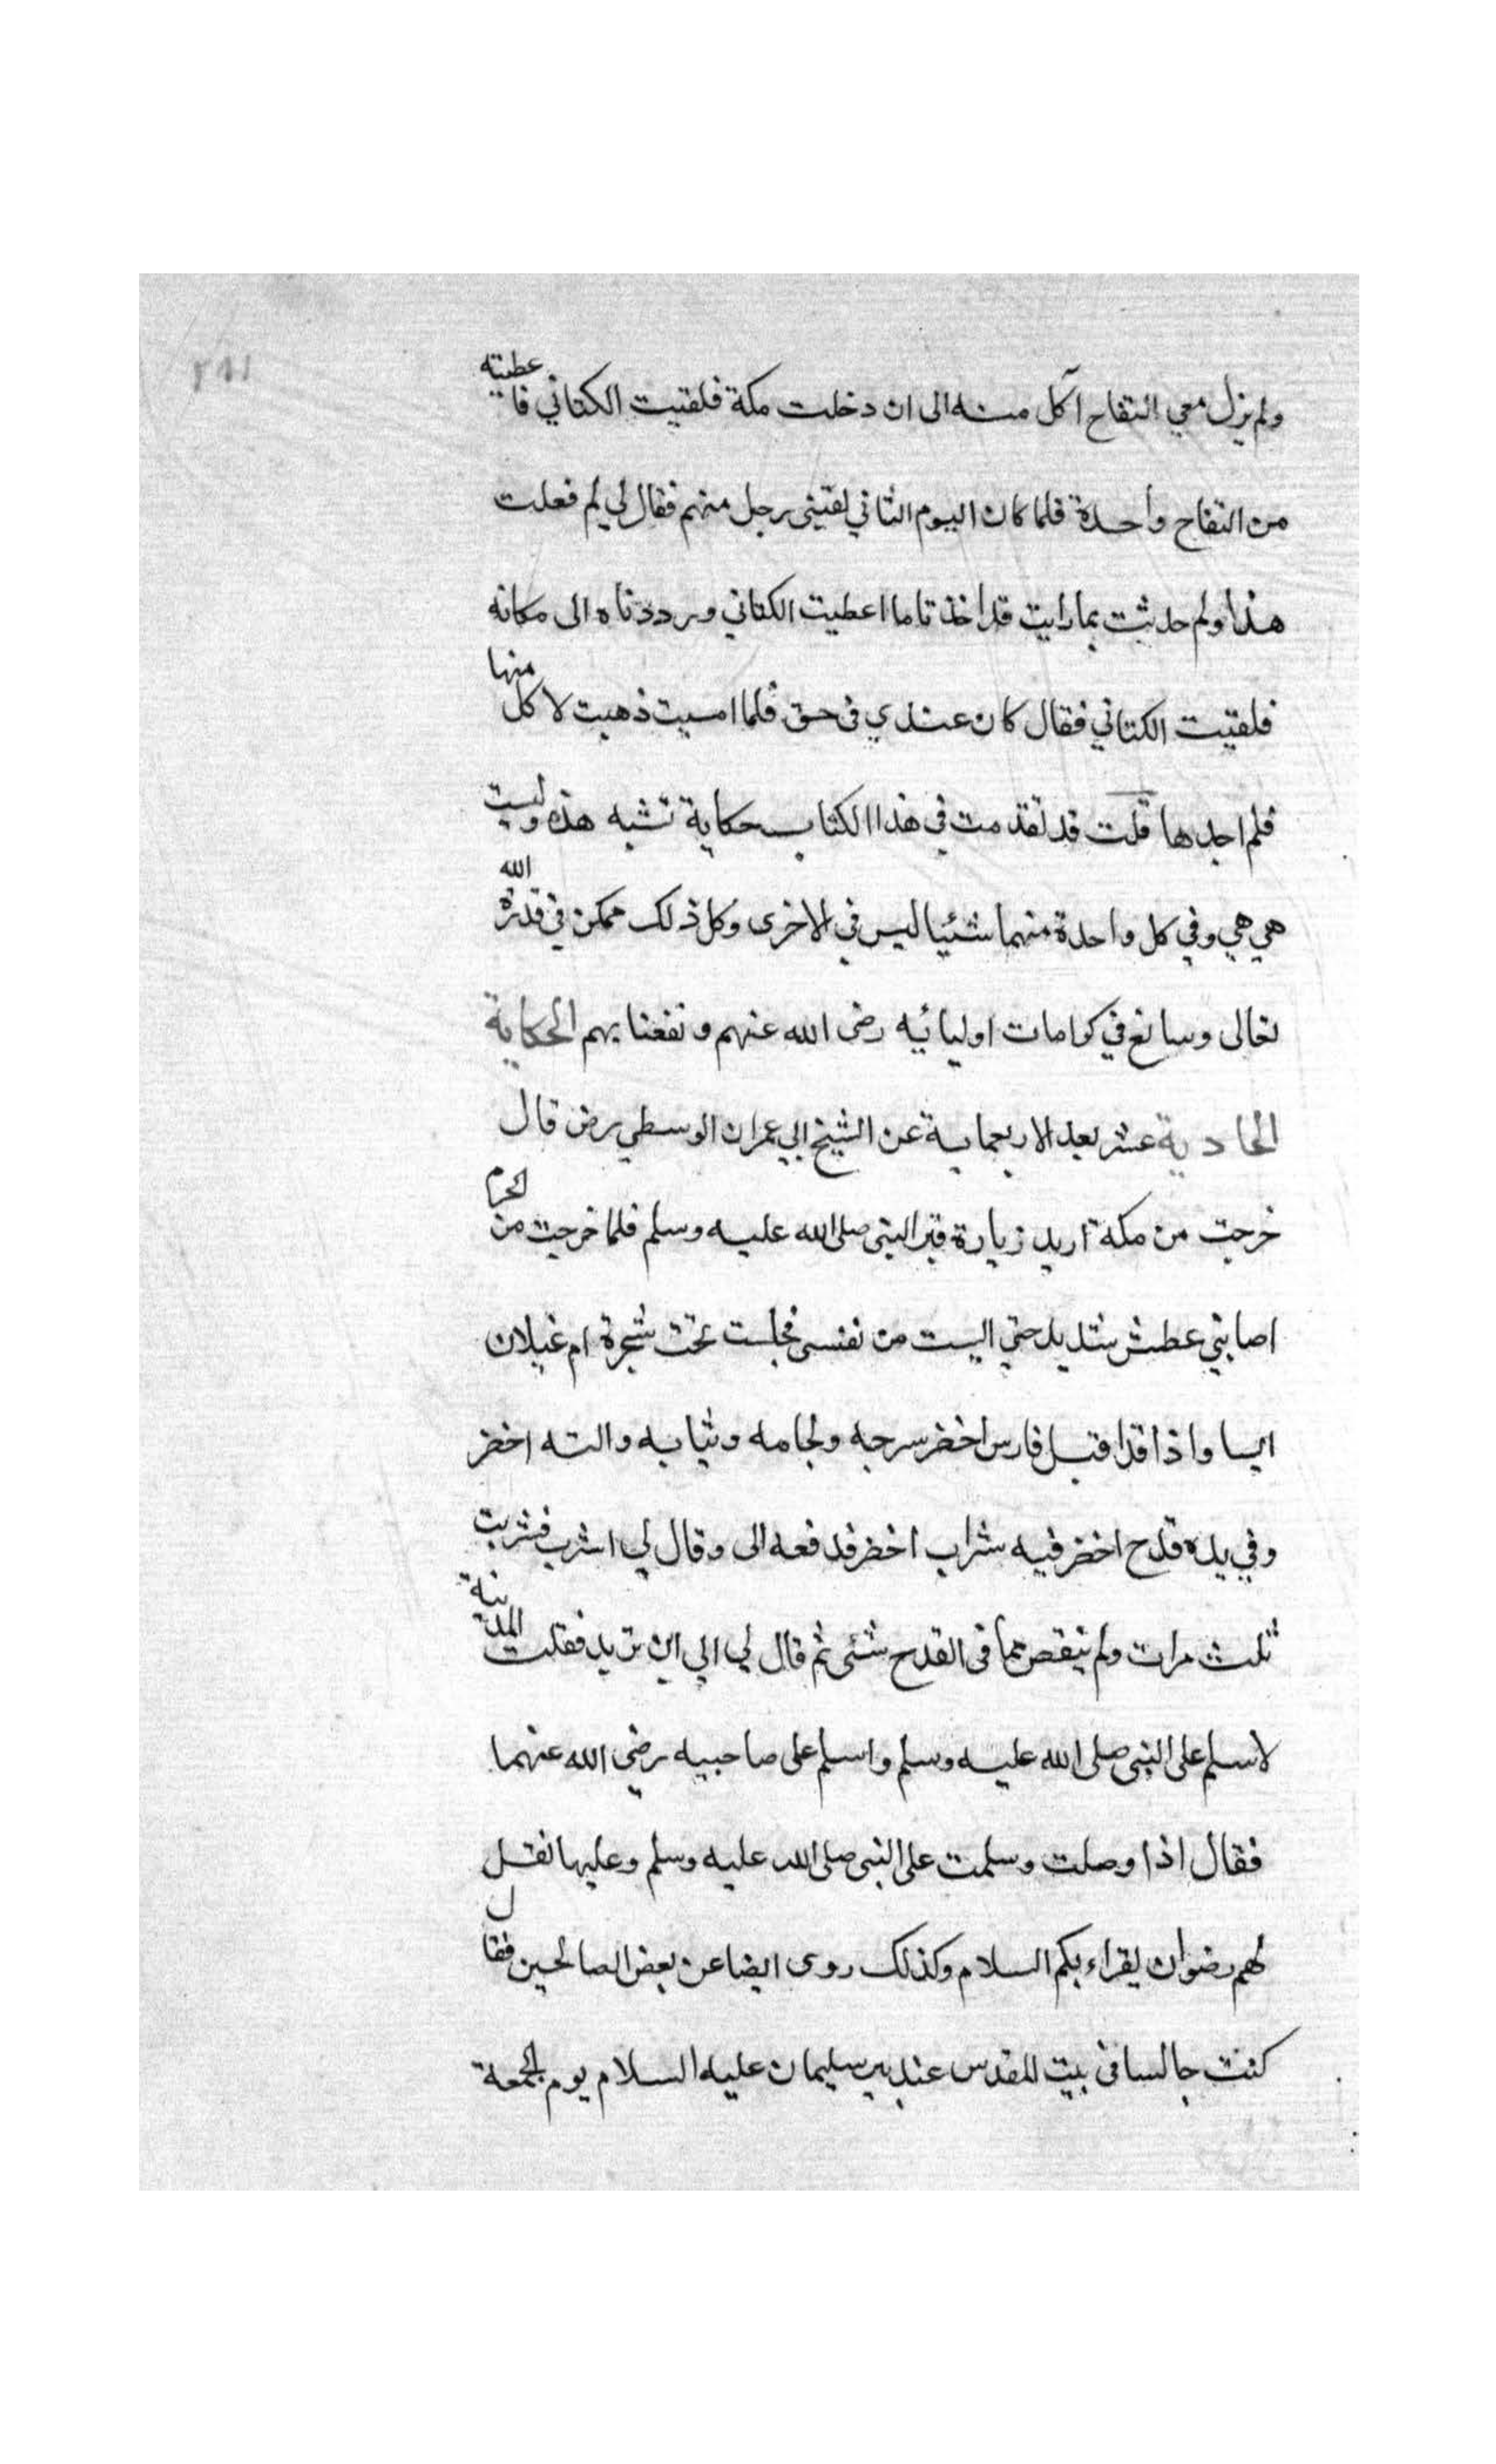 ٢٨١
ولم يزل معي التفاح آكل منه الى ان دخلت مكة فلقيت الكتاني فاعطيته
من التفاح واحدة فلما كان اليوم الثاني لقيني رجل منهم فقال لي لم فعلت
هذا ولم حدثت بما رايت قد اخذنا ما اعطيت الكتاني ورددناه الى مكانه
فلقيت الكتاني فقال كان عندي في حق فلما امسيت ذهبت لاكل منها
فلم اجدها قلت قد تقدمت في هذا الكتاب حكاية تشبه هذه وليست
هي هي وفي كل واحدة منهما شئيا ليس في الاخرى وكل ذلك ممكن في قدرة الله
تعالى وسائغ في كرامات اوليائيه رضى الله عنهم ونفعنا بهم الحكاية
الحادية عشر بعد الاربعماية عن الشيخ ابي عمران الوسطي رض قال
خرجت من مكة اريد زيارة قبر النبى صلى الله عليه وسلم فلما خرجت من الحرم
اصابني عطش شديد حتي اليست من نفسى فجلست تحت شجرة ام غيلان
ايسا واذا قد اقبل فارس اخضر سرجه ولجامه وثيابه والته اخضر
وفي يده قدح اخضر فيه شراب اخضر فدفعه الى وقال لي اشرب فشربت
ثلث مرات ولم ينقص مما فى القدح شئى ثم قال لي الي اين تريد فقلت المدينة
لاسلم على النبى صلى الله عليه وسلم واسلم على صاحبيه رضي الله عنهما
فقال اذا وصلت وسلمت على النبى صلى الله عليه وسلم وعليها نقل
لهم رضوان يقراء بكم السلام وكذلك روى ايضا عن بعض الصالحين فقال
كنت جالسا فى بيت المقدس عند بير سليمان عليه السلام يوم الجمعة